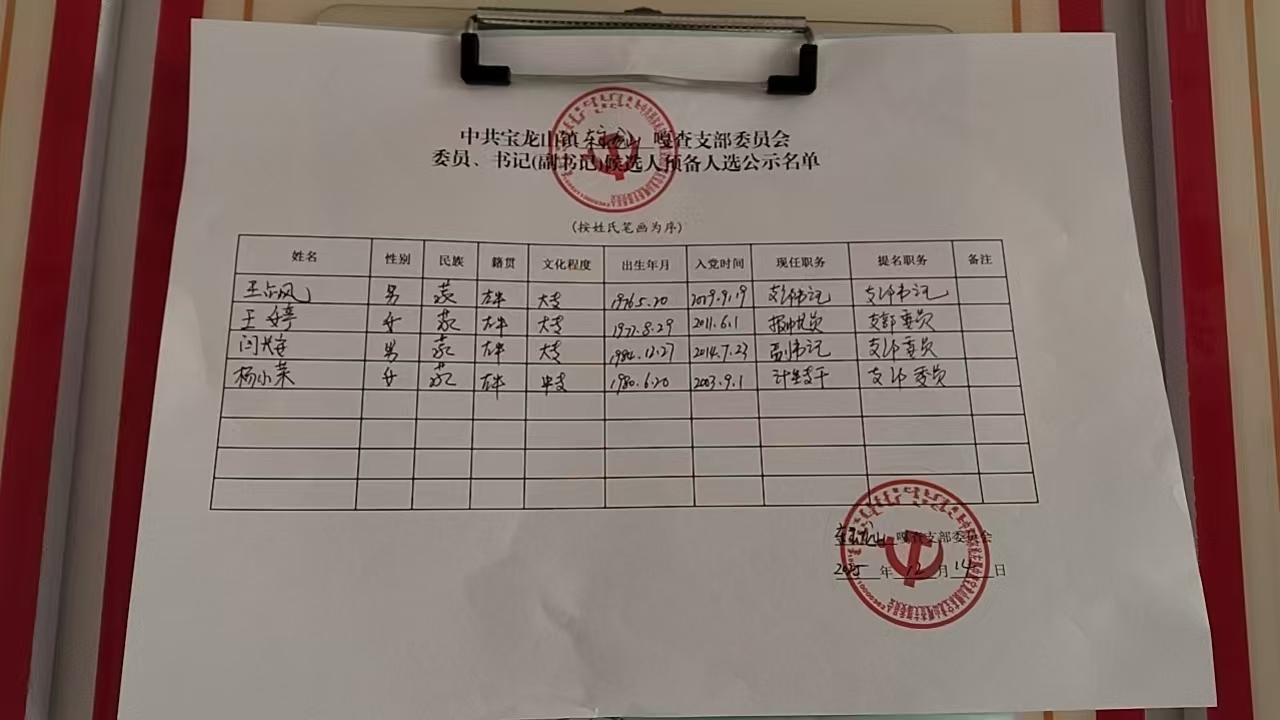 中共宝龙山镇 嘎查支部委员会
委员、书记(副书记)候选人预备人选公示名单
(按姓氏笔画为序)
姓名 性别 民族 籍贯 文化程度 出生年月 入党时间 现任职务 提名职务 备注
王占风 男 蒙 左中 大专 1976.5.20 2019.9.19 支部书记 支部书记
王婷 女 蒙 左中 大专 1977.8.29 2011.6.1 支部委员
男 蒙 左中 大专 1984.12.27 2014.7.23 副书记 支部委员
杨小荣 女 蒙 左中 中专 1980.6.20 2003.9.1 计生专干 支部委员
嘎查支部委员会
2025年12月14日